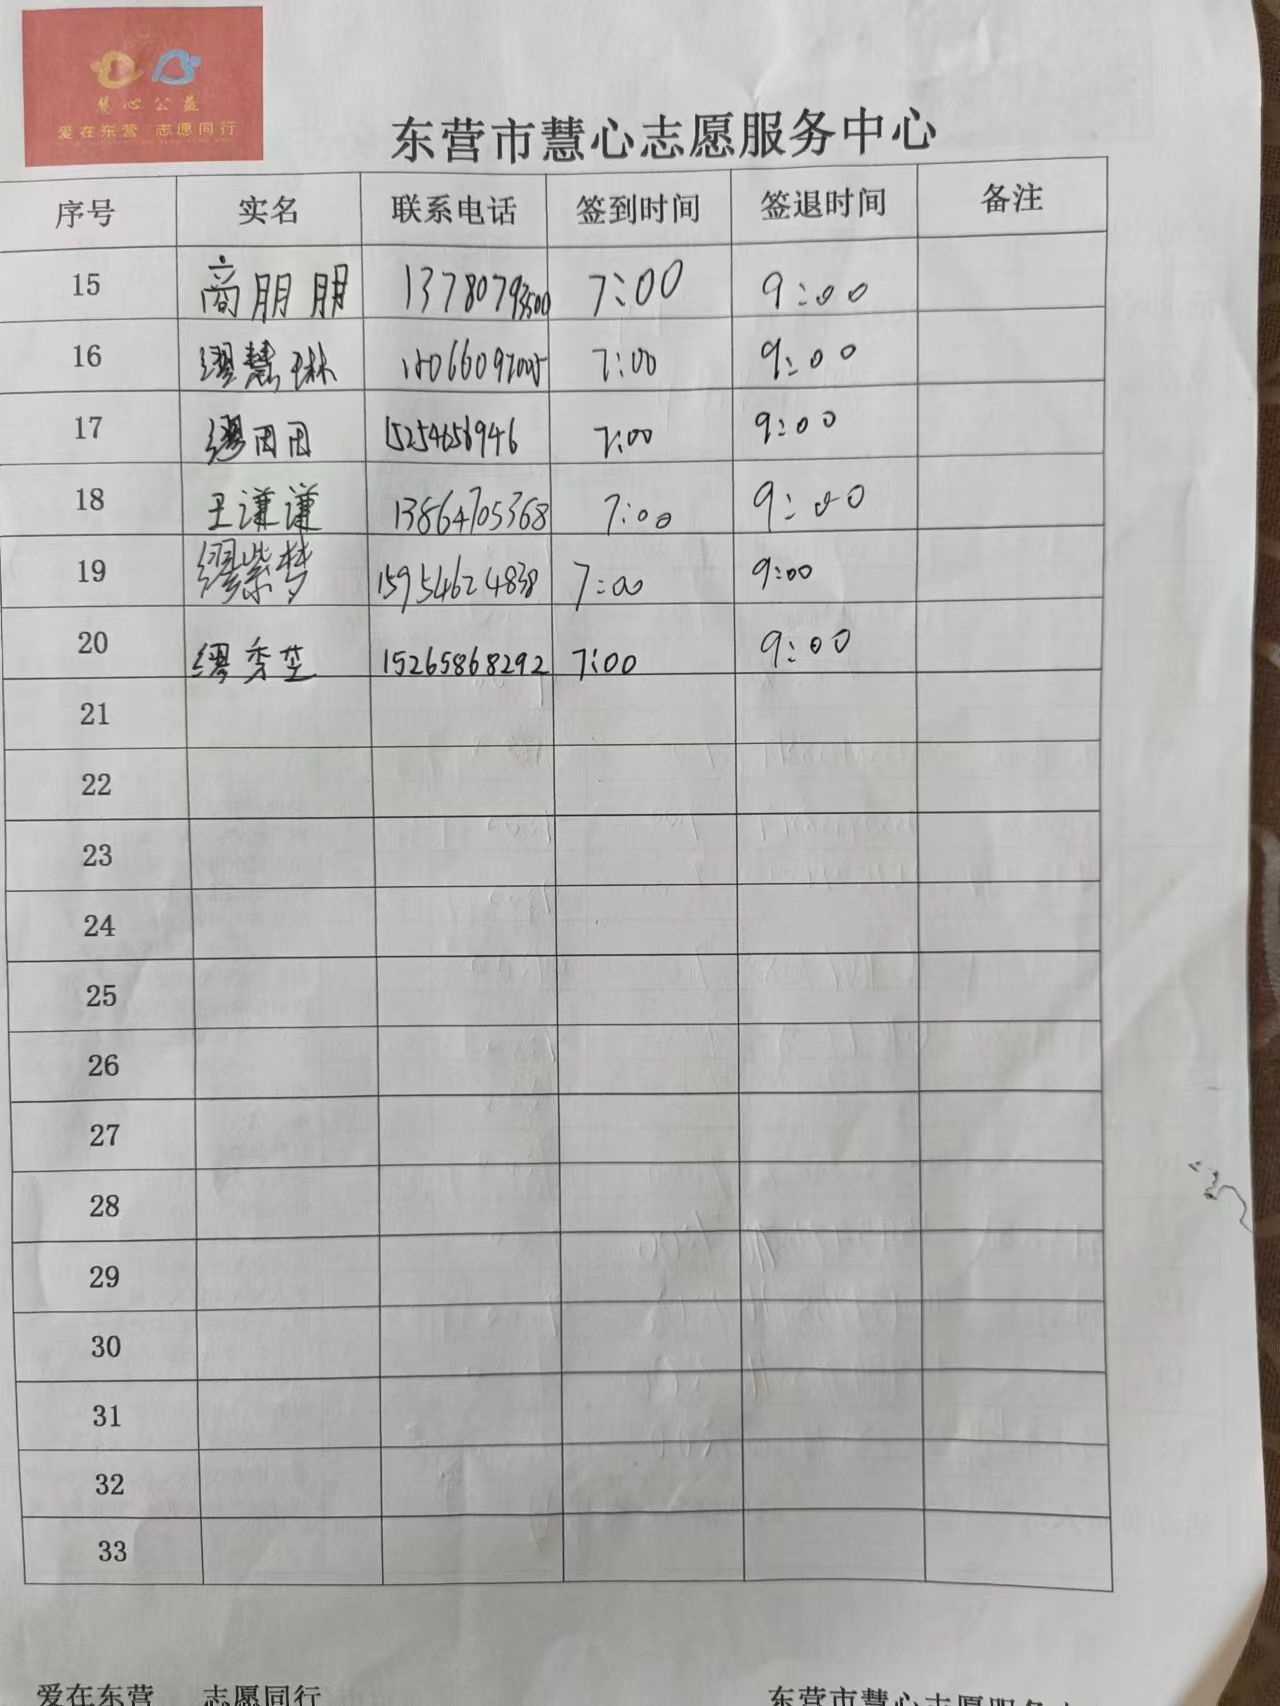 慧心公益
爱在东营 志愿同行
东营市慧心志愿服务中心
序号 实名 联系电话 签到时间 签退时间 备注
15 商朋朋 13780793500 7:00 9:00
16 缪慧琳 7:00 9:00
17 缪田田 15254656946 7:00 9:00
18 王谦谦 13864705368 7:00 9:00
19 缪紫梦 15954624838 7:00 9:00
20 缪秀芝 15265868292 7:00 9:00
21
22
23
24
25
26
27
28
29
30
31
32
33
爱在东营 志愿同行 东营市慧心志愿服务中心